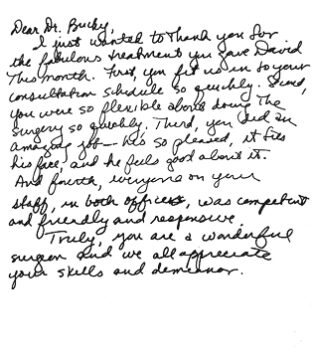 Dear Dr. Bucky,
I just wanted to thank you for
the fabulous treatment you gave David
this month. First, you fit us in to your
consultation schedule so quickly. Second,
you were so flexible about doing the
surgery so quickly. Third, you did an
amazing job — he's so pleased, it fits
his face, and he feels good about it.
And fourth, everyone on your
staff, in both offices, was competent
and friendly and responsive.
Truly, you are a wonderful
surgeon and we all appreciate
your skills and demeanor.